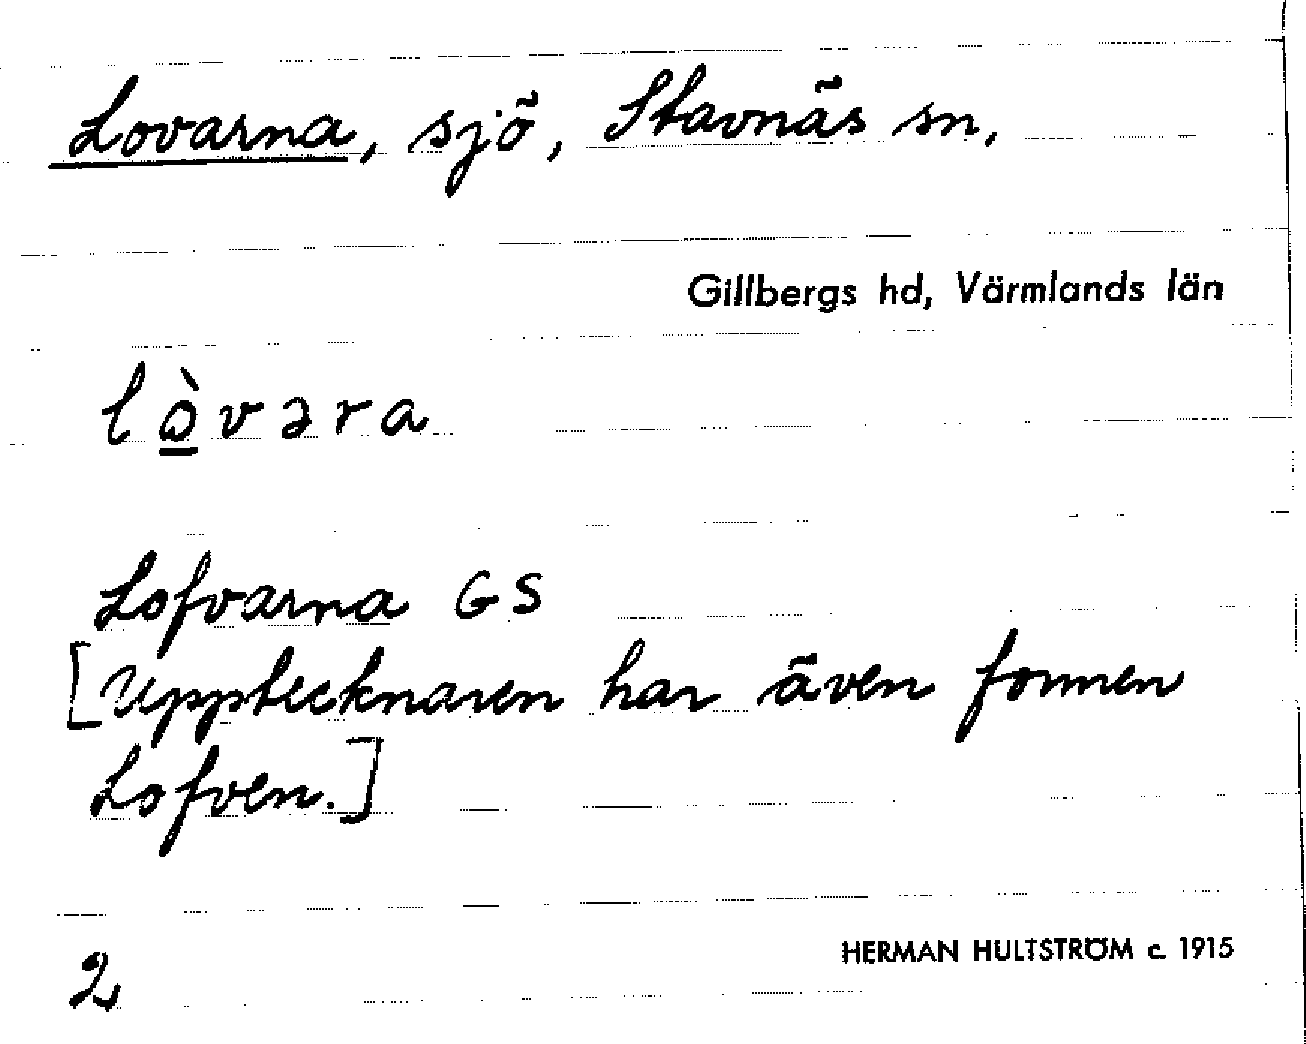 Lovarna, sjö, Stavnäs sn,
Gillbergs hd, Värmlands län
lò̲vəra
Lofvarna GS
[Upptecknaren har även formen
Lofven.]
2
HERMAN HULTSTRÖM c. 1915